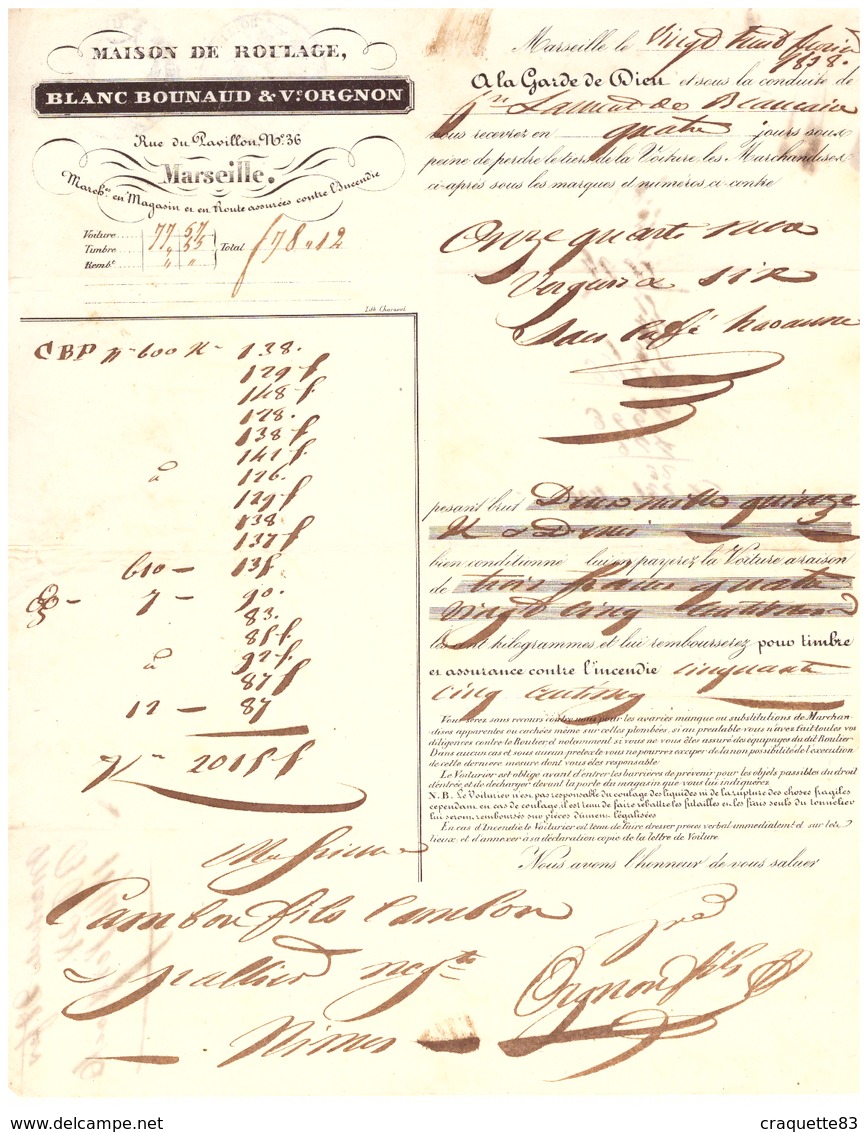 MAISON DE ROULAGE,
BLANC BOUNAUD & Vᵉ ORGNON
Rue du Pavillon, Nº 36
Marseille.
Marchˢᵉˢ en Magasin et en Route assurées contre l'Incendie
Voiture .... 77 57
Timbre .... " 55 Total 78 " 12
Rembᵗ .... " "
Lith Charavel
Marseille le vingt huit février
1838.
A la Garde de Dieu et sous la conduite de
Laurent de Beaucaire
Vous recevrez en quatre jours sous
peine de perdre le tiers de la Voiture les Marchandises
ci-après sous les marques et numéros ci-contre
Onze quarts
six
Sacs caffé havanne
CBP Nº 600 K 138.
129 f
148 f
128.
138 f
141 f
à 126.
129 f
138
137 f
610 — 135
7 — 90.
83.
85 f
à 92 f
87 f
12 — 87
Kº 2015 f
pesant brut Deux mille quinze
K & Demi
bien conditionné lui en payerez la Voiture a raison
de trois francs quatre
vingt cinq centimes
les cent kilogrammes et lui rembourserez pour timbre
et assurance contre l'incendie cinquante
cinq centimes
Vous serez sans recours contre nous pour les avaries manque ou substitutions de Marchan-
dises apparentes ou cachées même sur celles plombées, si au prealable vous n'avez fait toutes vos
diligences contre le Routier et notamment si vous ne vous êtes assuré des equipages du dit Routier.
Dans aucun cas et sous aucun pretexte vous ne pourrez exciper de la non possibilité de l'execution
de cette derniere mesure dont vous êtes responsable
Le Voiturier est obligé avant d'entrer les barrières de prévenir pour les objets passibles du droit
d'entrée, et de decharger devant la porte du magasin que vous lui indiquerez
N.B. Le Voiturier n'est pas responsable du coulage des liquides ni de la rupture des choses fragiles
cependant en cas de coulage, il est tenu de faire rebattre les futailles et les frais seuls du tonnelier
lui seront remboursés sur pièces dûment légalisées
En cas d'Incendie le Voiturier est tenu de faire dresser procès verbal immediatement et sur les
lieux, et d'annexer à sa déclaration copie de la lettre de Voiture.
Nous avons l'honneur de vous saluer
Messieurs
Cambon fils Cambon
Vallier negᵗˢ
Nimes
Orgnon fils
craquette83